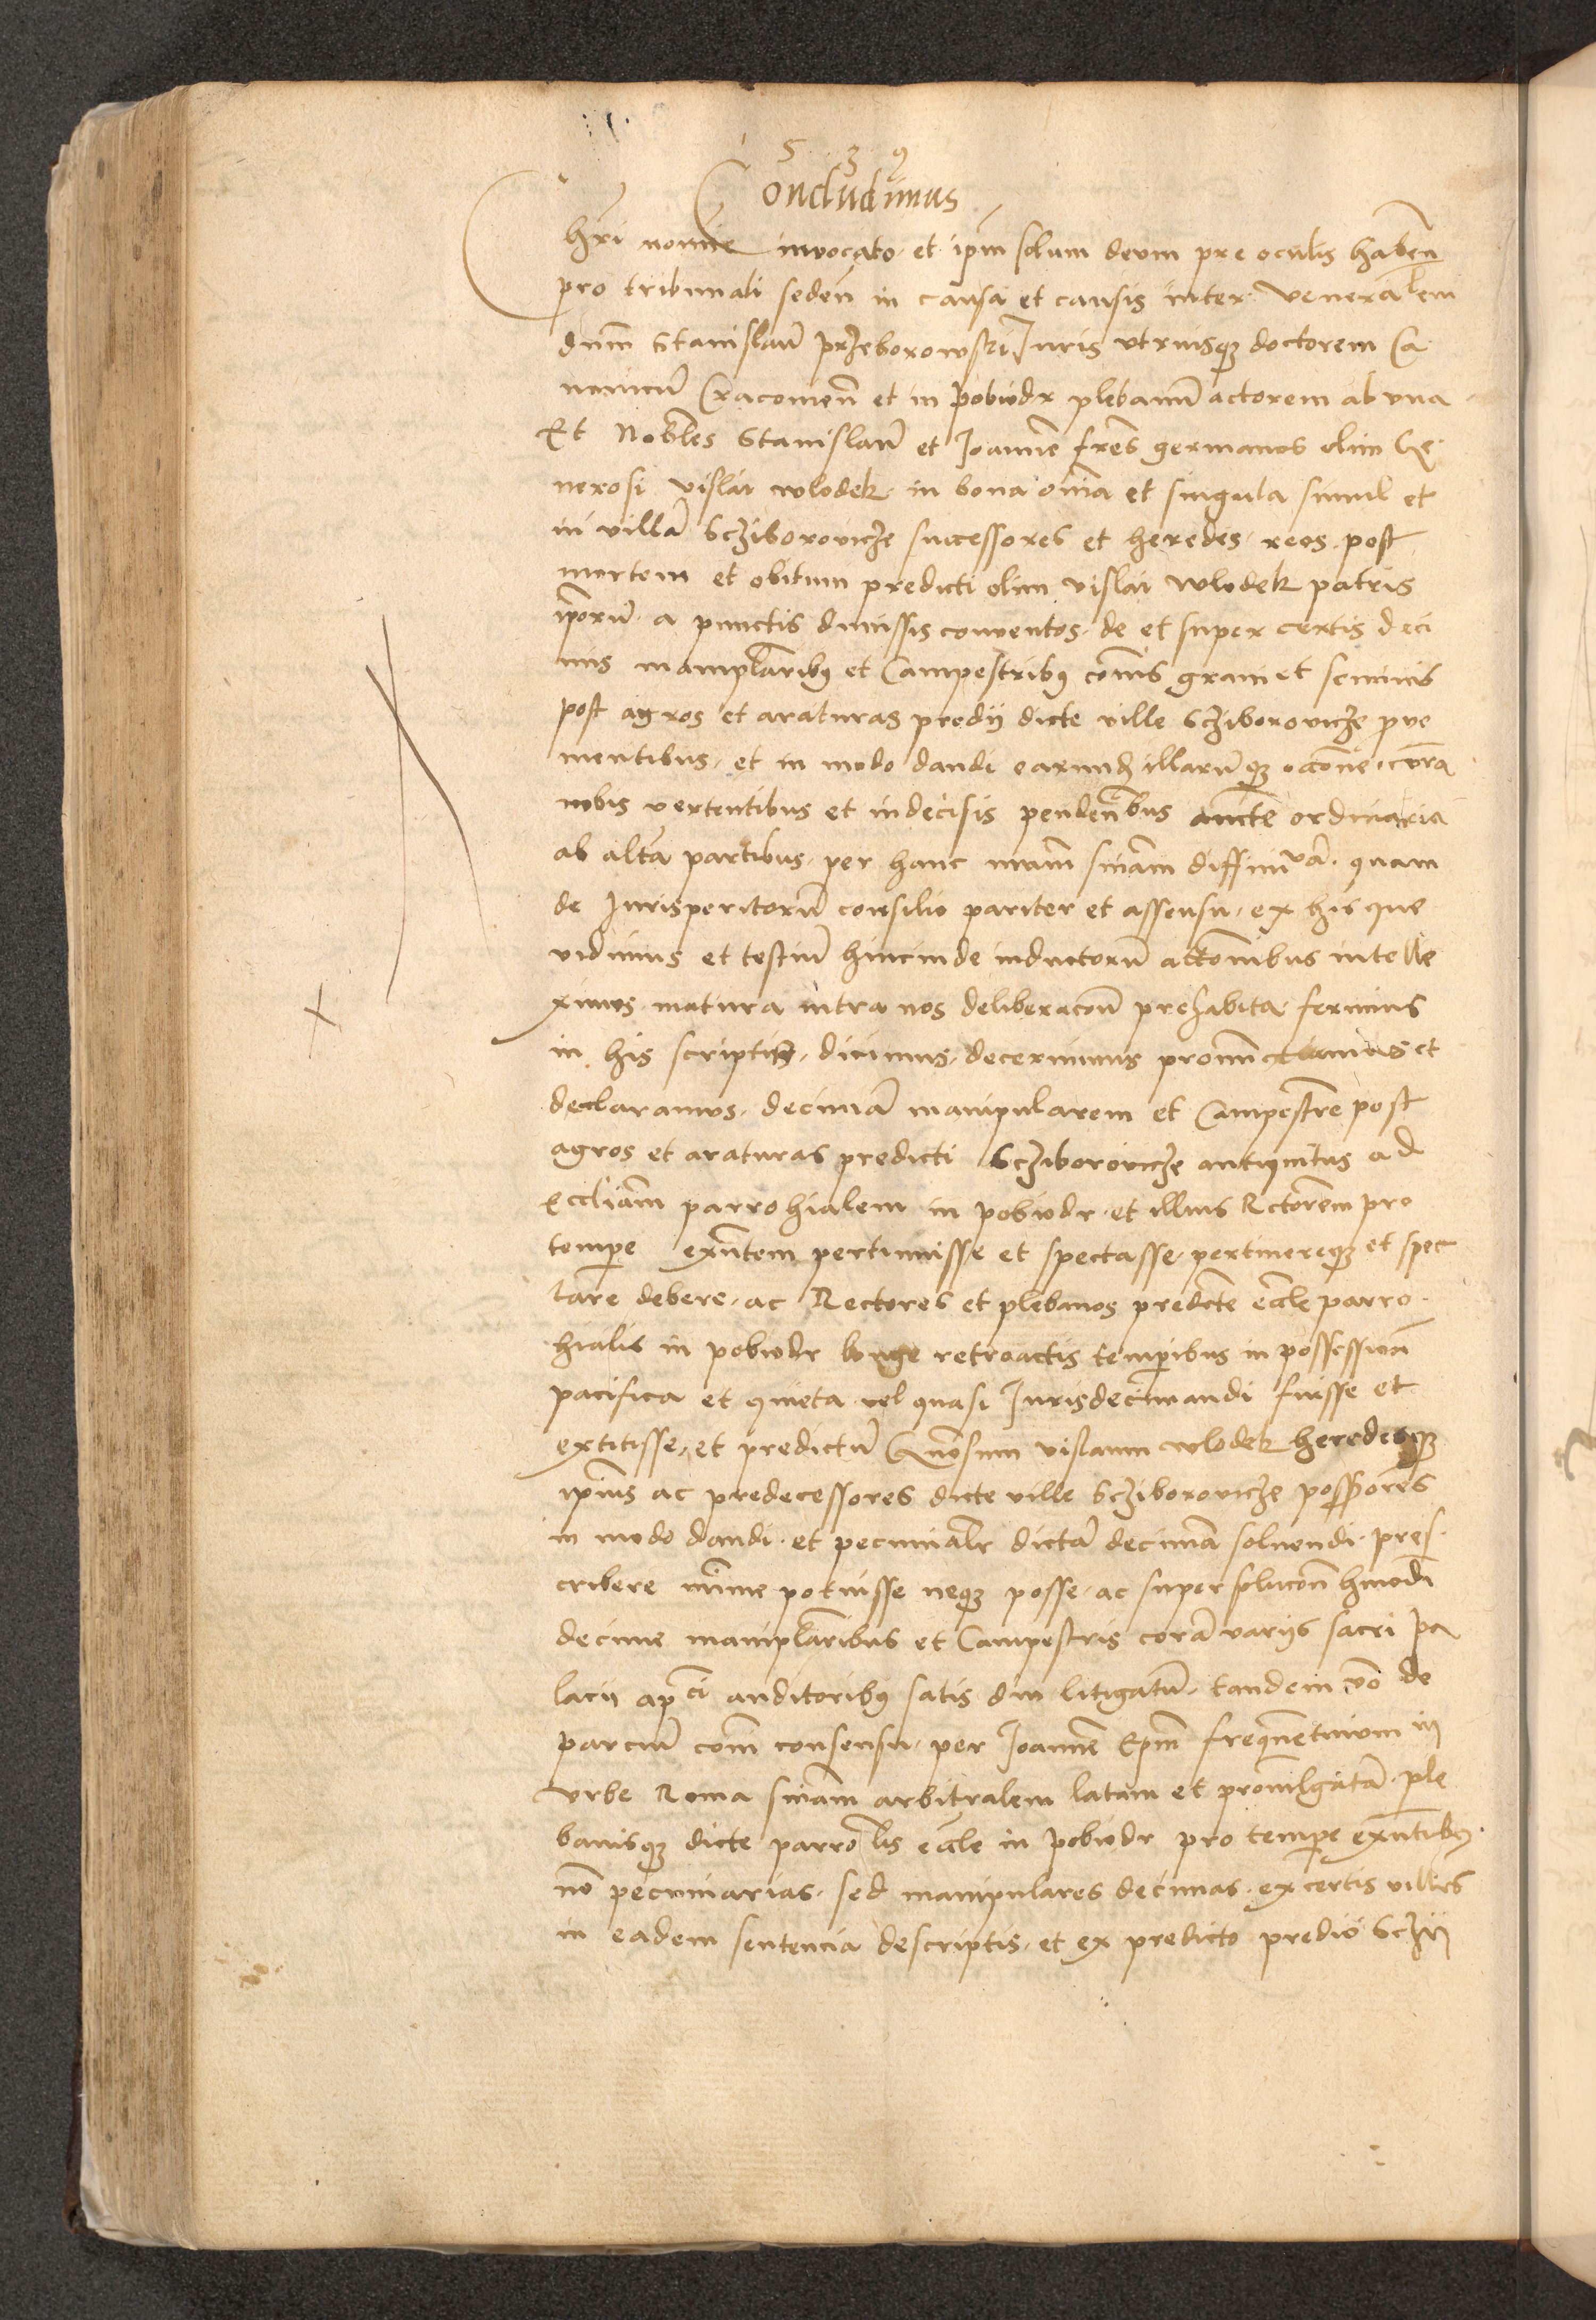 1 5 3 9
Concludimus
Chri nomine invocato et ipm solum deum pre oculis haben
pro tribunali seden in causa et causis inter Venerabilem
dnm Stanislau przeborowski Juris utriusq doctorem Ca
nonicu Cracouien et in pobiedr plebanu actorem ab una
Et Nobiles Stanislau et Joanne fres germanos olim Ge
nerosi vislai wlodek in bona oma et singula simul et
in villa Scziborovicze successores et heredes reos post
mortem et obitum predicti olim vislai wlodek patris
iporu a punctis dimissis conventos de et super certis deci
mis maniplaribus et Campestribus cuiuis grani et seminis
post agros et araturas predij dicte ville Scziborovicze prove
nientibus et in modo dandi earund illaruq occone cora
nobis vertentibus et indecisis pendentibus aucte ordinaria
ab altera partibus per hanc nram sniam diffinitiva quam
de Jurisperitoru consilio pariter et assensu ex his que
vidimus et testiu hincinde inductoru attconibus intelle
ximus matura intra nos deliberacon prehabita ferimus
in his scriptis dicimus decernimus pronunctiamus et
declaramus decima manipularem et Campestre post
agros et araturas predicti Scziborovicze antiquitus ad
Eccliam parrohialem in pobiedr et illius Rctorem pro
tempe exntem pertinuisse et spectasse pertinereq et spec
tare debere ac Rectores et plebanos predicte eccle parro
hialis in pobiedr longe retroactis temporibus in possession
pacifica et quieta vel quasi Jurisdecimandi fuisse et
extitisse et predictu Gnosum vislaum wlodek heredesq
ipius ac predecessores dicte ville Scziborovicze possores
in modo dandi et pecunialr dicta decima solvendi pres
cribere mime potuisse neq posse ac super solucon hmodi
decime maniplaribus et Campestris cora varijs sacri pa
lacij apci auditoribus satis diu litigatu tandem vo de
parciu comi consensu per Joanne Epm frequentinum in
Urbe Roma sniam arbitralem latam et promulgata ple
banisq dicte parrolis eccle in pobiedr pro tempe exntibus
no pecuniarias sed manipulares decimas ex certis villis
in eadem sentencia descriptis et ex predicto predio Sczii